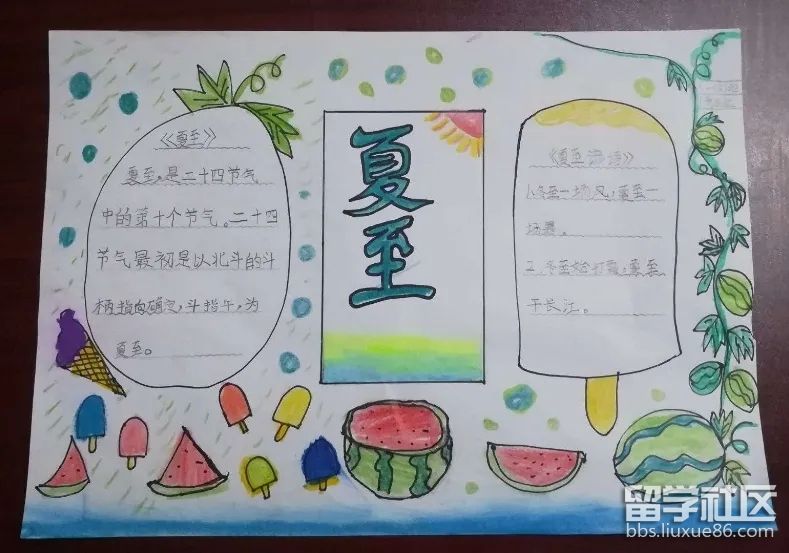 《夏至》
夏至,是二十四节气
中的第十个节气。二十四
节气最初是以北斗的斗
柄指向确定,斗指午,为
夏至。
夏至
《夏至谚语》
1、冬至一场风,夏至一
场暴。
2、冬至始打霜,夏至
干长江。
留学社区
bbs.liuxue86.com